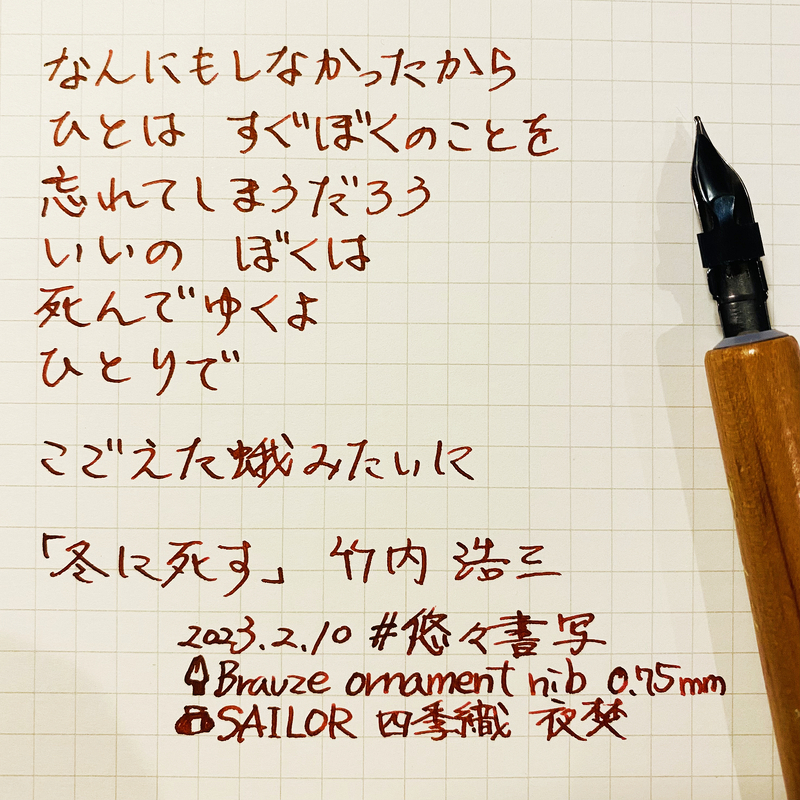 なんにもしなかったから
ひとは すぐぼくのことを
忘れてしまうだろう
いいの ぼくは
死んでゆくよ
ひとりで
こごえた蛾みたいに
「冬に死す」 竹内 浩三
2023.2.10 #悠々書写
Brauze ornament nib 0.75mm
SAILOR 四季織 夜焚